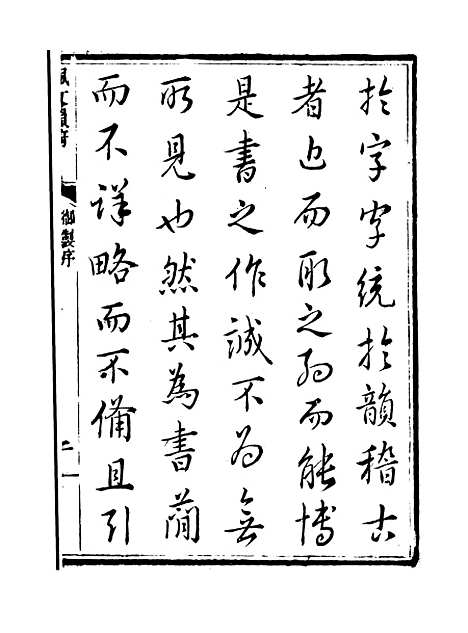 於字字統於韻稽古
者近而取之約而能博
是書之作誠不為無
所見也然其為書簡
而不詳略而不備且引
佩文韻府
御製序